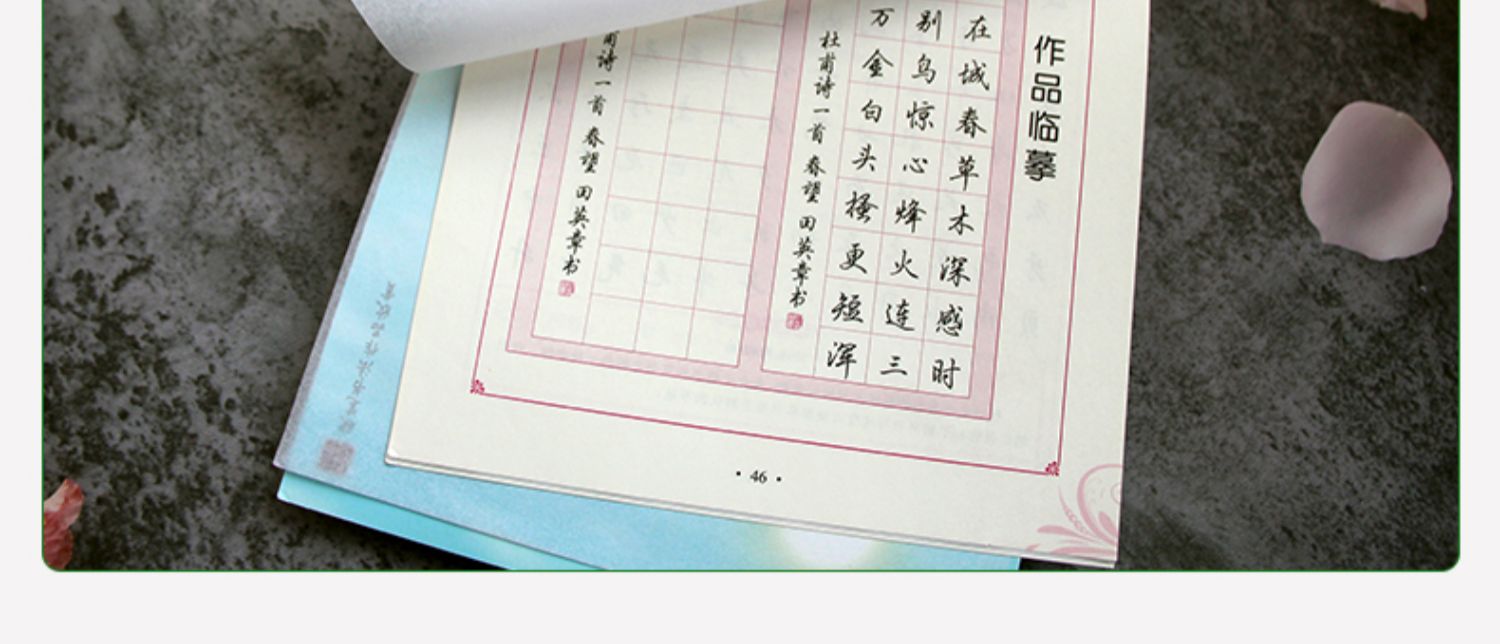 作品临摹
在城春草木深感时
别鸟惊心烽火连三
万金白头搔更短浑
杜甫诗一首 春望 田英章书
甫诗一首 春望 田英章书
46